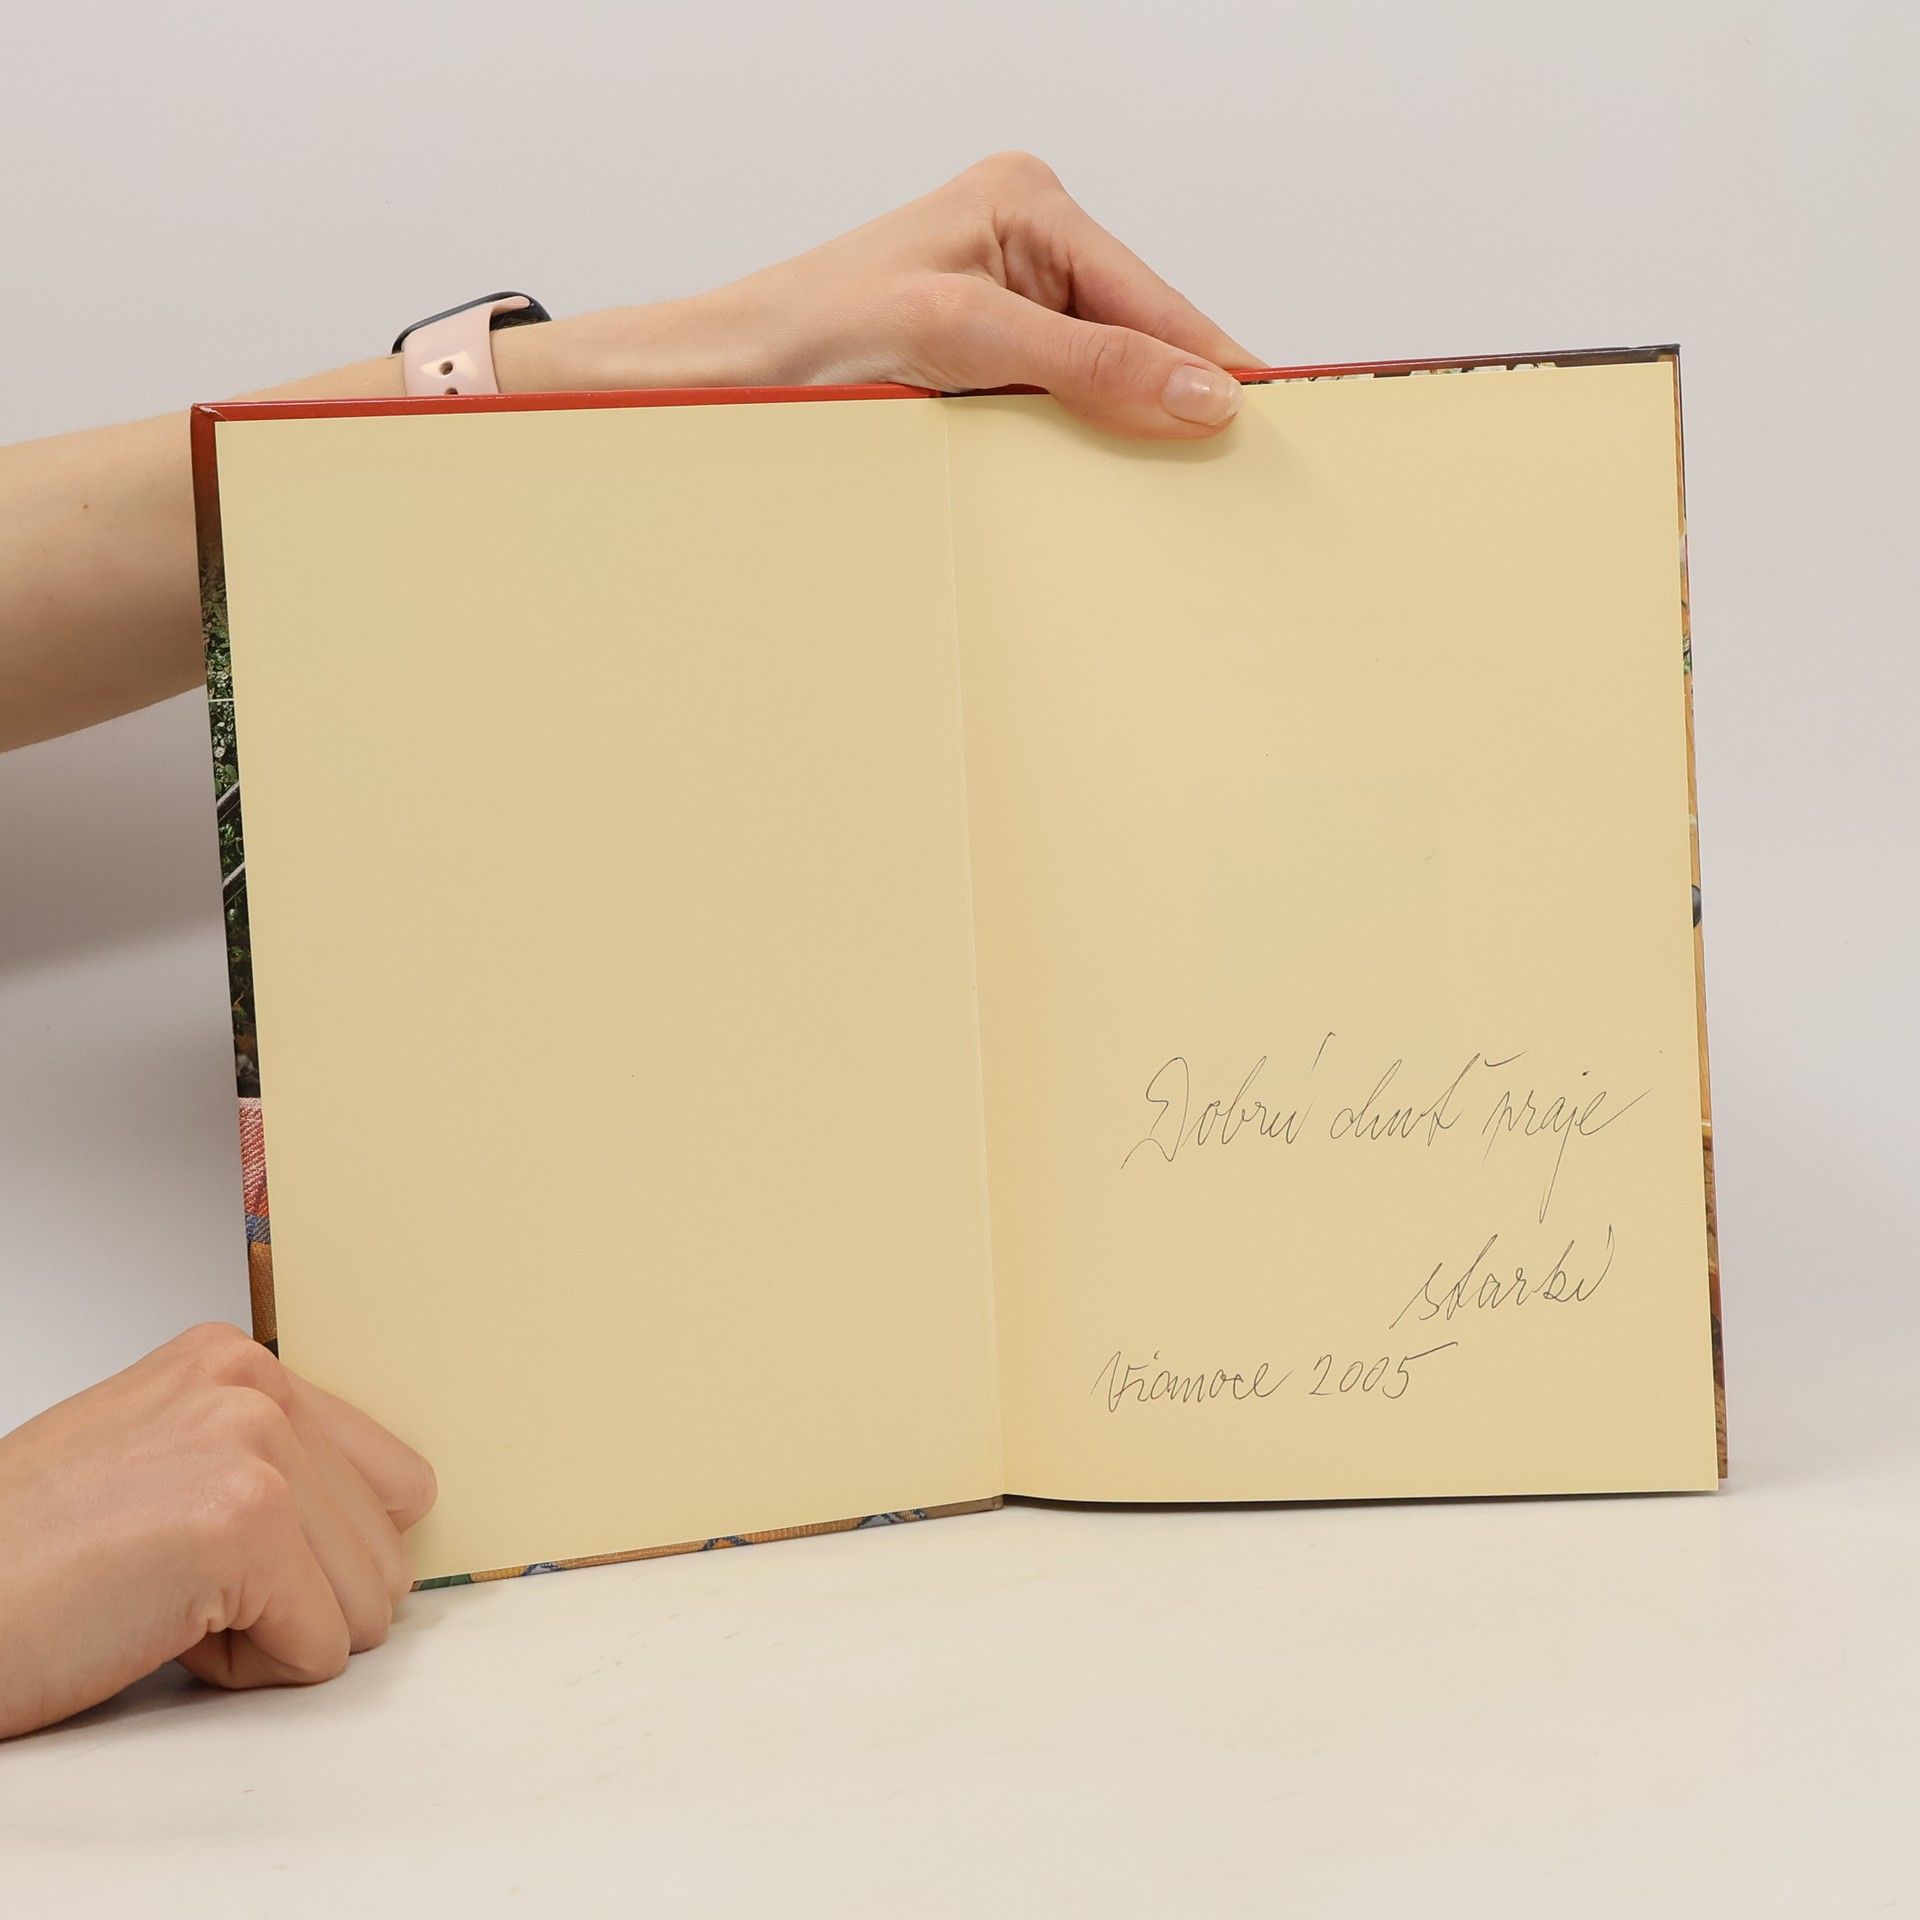 Dobrú chuť praje
starkí
Vianoce 2005